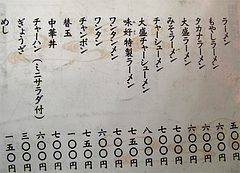 ラーメン 五〇〇円
もやしラーメン 六〇〇円
タカナラーメン 六〇〇円
大盛ラーメン 六〇〇円
みそラーメン 六〇〇円
チャーシューメン 七〇〇円
大盛チャーシューメン 八〇〇円
味好特製ラーメン 七五〇円
ワンタンメン 七〇〇円
ワンタン 五〇〇円
チャンポン 七五〇円
替玉 一〇〇円
中華丼 七〇〇円
チャーハン(ミニサラダ付) 六〇〇円
ぎょうざ 三〇〇円
めし 一五〇円